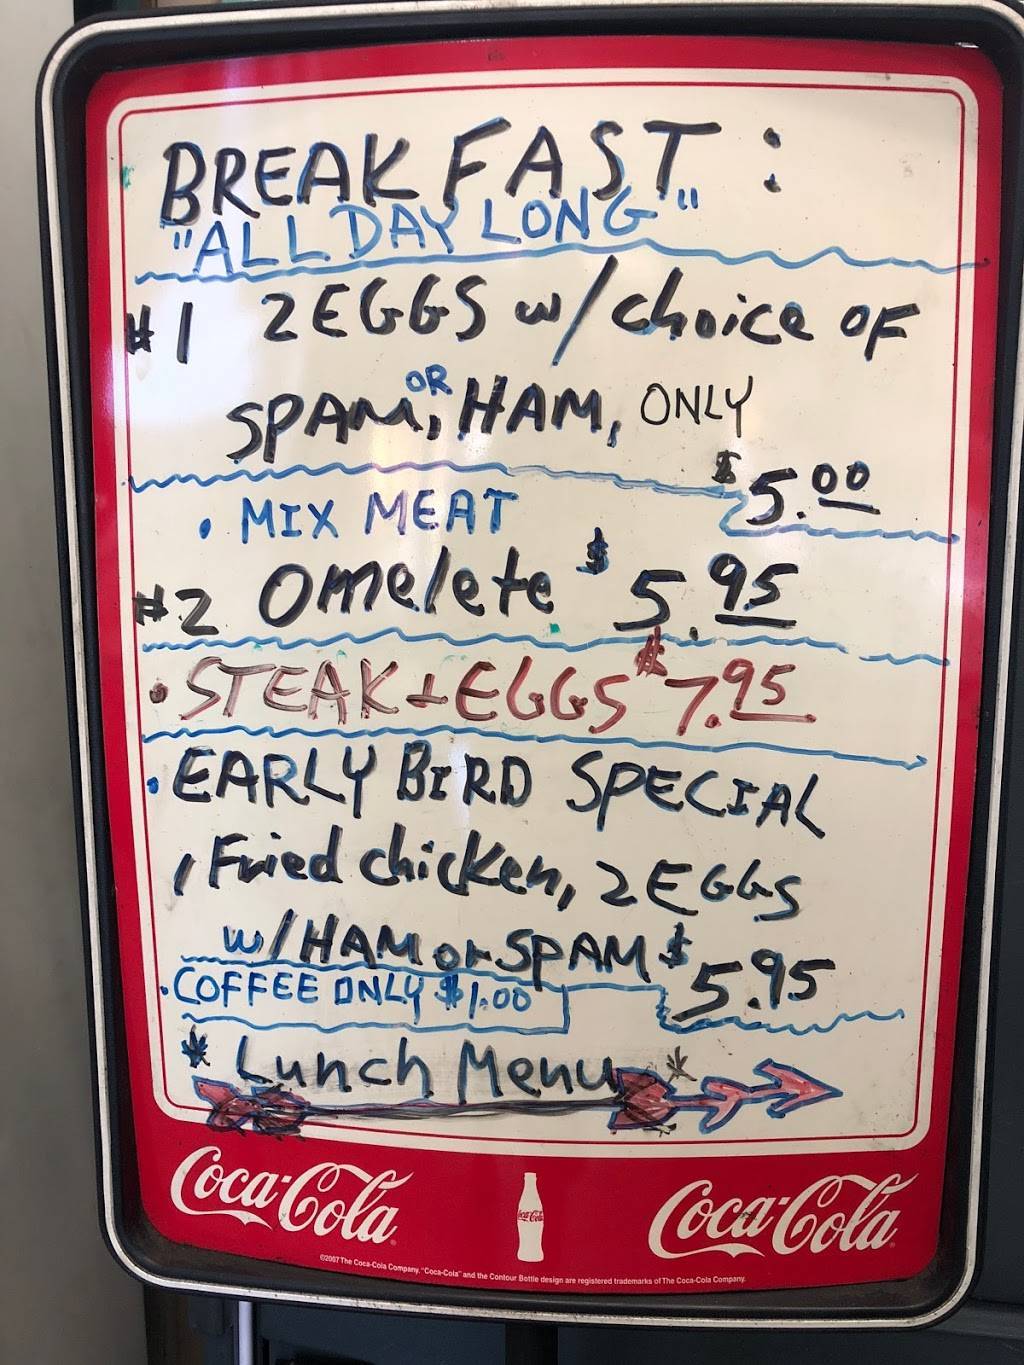 BREAKFAST:
"ALL DAY LONG"
#1 2 EGGS w/ choice OF
OR
SPAM, HAM, ONLY
$5.00
• MIX MEAT
#2 Omelete $5.95
• STEAK + EGGS $7.95
• EARLY BIRD SPECIAL
1 Fried chicken, 2 EGGS
w/ HAM or SPAM $5.95
• COFFEE ONLY $1.00
* Lunch Menu *
Coca-Cola Coca-Cola Coca-Cola
©2007 The Coca-Cola Company. "Coca-Cola" and the Contour Bottle design are registered trademarks of The Coca-Cola Company.